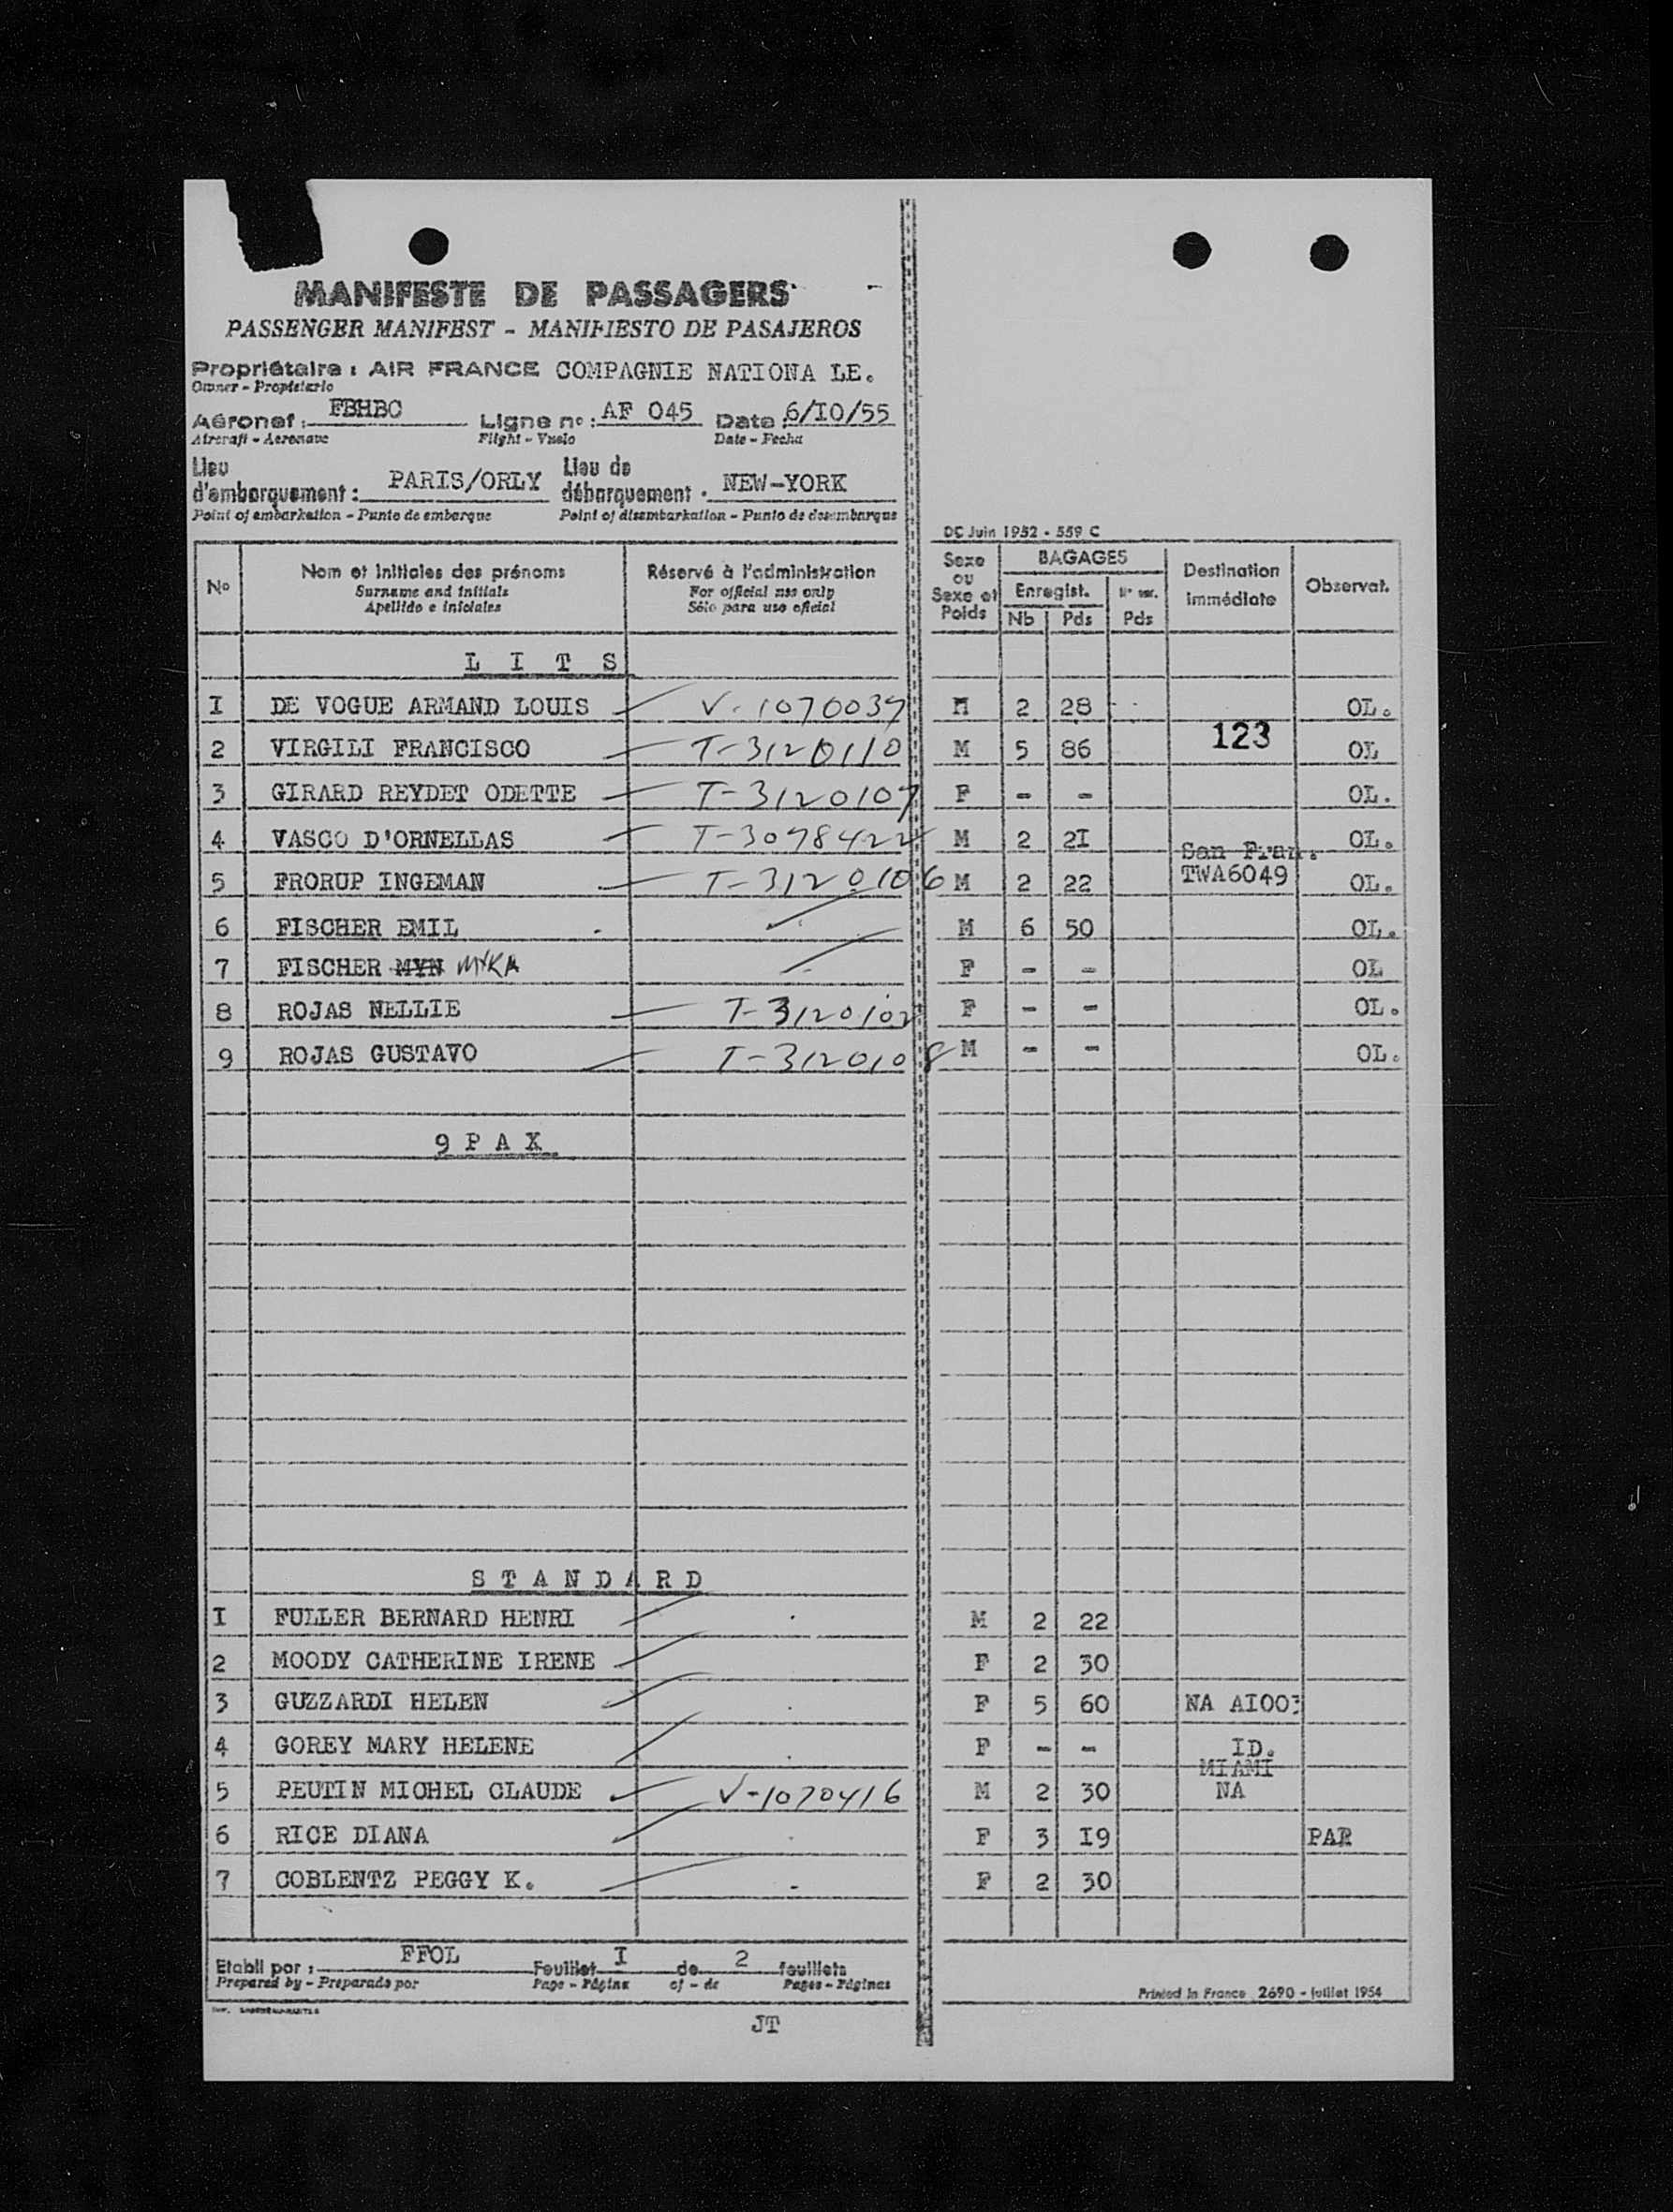 MANIFESTE DE PASSAGERS
PASSENGER MANIFEST - MANIFIESTO DE PASAJEROS
Propriétaire : AIR FRANCE COMPAGNIE NATIONA LE.
Owner - Propietario
Aéronef : FBHBC Ligne n° : AF 045 Date : 6/IO/55
Aircraft - Aeronave Flight - Vuelo Date - Fecha
Lieu d'embarquement : PARIS/ORLY Lieu de débarquement : NEW-YORK
Point of embarkation - Punto de embarque Point of disembarkation - Punto de desembarque
DC Juin 1952 - 559 C
N° Nom et initiales des prénoms Réservé à l'administration Sexe ou Sexe et Poids BAGAGES Destination immédiate Observat.
Surname and initials For official use only Enregist.
Apellido e iniciales Sólo para uso oficial Nb Pds Pds
L I T S
I DE VOGUE ARMAND LOUIS V-1070037 M 2 28 OL.
123
2 VIRGILI FRANCISCO T-3120110 M 5 86 OL
3 GIRARD REYDET ODETTE T-3120107 F - - OL.
4 VASCO D'ORNELLAS T-3078422 M 2 2I OL.
San Fran.
5 FRORUP INGEMAN T-3120106 M 2 22 TWA6049 OL.
6 FISCHER EMIL M 6 50 OL.
7 FISCHER MYN MYKA F - - OL
8 ROJAS NELLIE T-3120102 F - - OL.
9 ROJAS GUSTAVO T-3120108 M - - OL.
9 P A X
S T A N D A R D
I FULLER BERNARD HENRI M 2 22
2 MOODY CATHERINE IRENE F 2 30
3 GUZZARDI HELEN F 5 60 NA AI003
4 GOREY MARY HELENE F - - ID.
MIAMI
5 PEUTIN MICHEL CLAUDE V-1070416 M 2 30 NA
6 RICE DIANA F 3 I9 PAR
7 COBLENTZ PEGGY K. F 2 30
Etabli par : FFOL Feuillet I de 2 feuillets
Prepared by - Preparado por Page - Página of - de Pages - Páginas
Printed in France 2690 - juillet 1954
JT